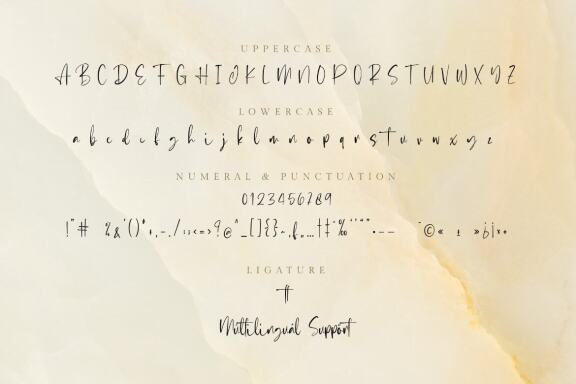 UPPERCASE
A B C D E F G H I J K L M N O P Q R S T U V W X Y Z
LOWERCASE
a b c d e f g h i j k l m n o p q r s t u v w x y z
NUMERAL & PUNCTUATION
0123456789
! " # % & ' ( ) * + , - . / : ; < = > ? @ ^ _ [ ] { } ~ ‚ ƒ „ … † ‡ ˆ ‰ ‘ ’ “ ” • – — ˜ © « ± » ¿ ¡ × •
LIGATURE
tt
Multilingual Support